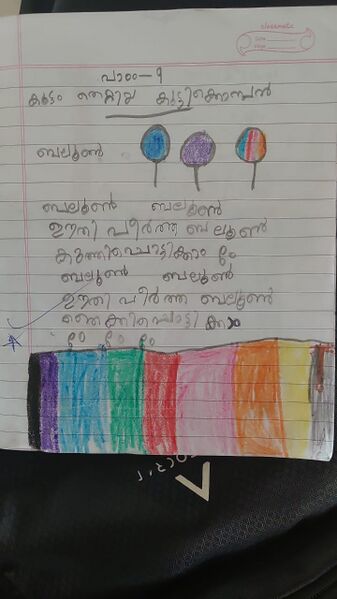 classmate
Date
Page
പാഠം-1
കൂട്ടം തെറ്റിയ കുട്ടിക്കൊമ്പൻ
ബലൂൺ
ബലൂൺ ബലൂൺ
ഊതി പീർത്ത ബലൂൺ
കുത്തിപ്പൊട്ടിക്കാം ഠോ
ബലൂൺ ബലൂൺ
ഊതി പീർത്ത ബലൂൺ
ഞെക്കിപ്പൊട്ടിക്കാം
ഠോ ഠോ ഠോ